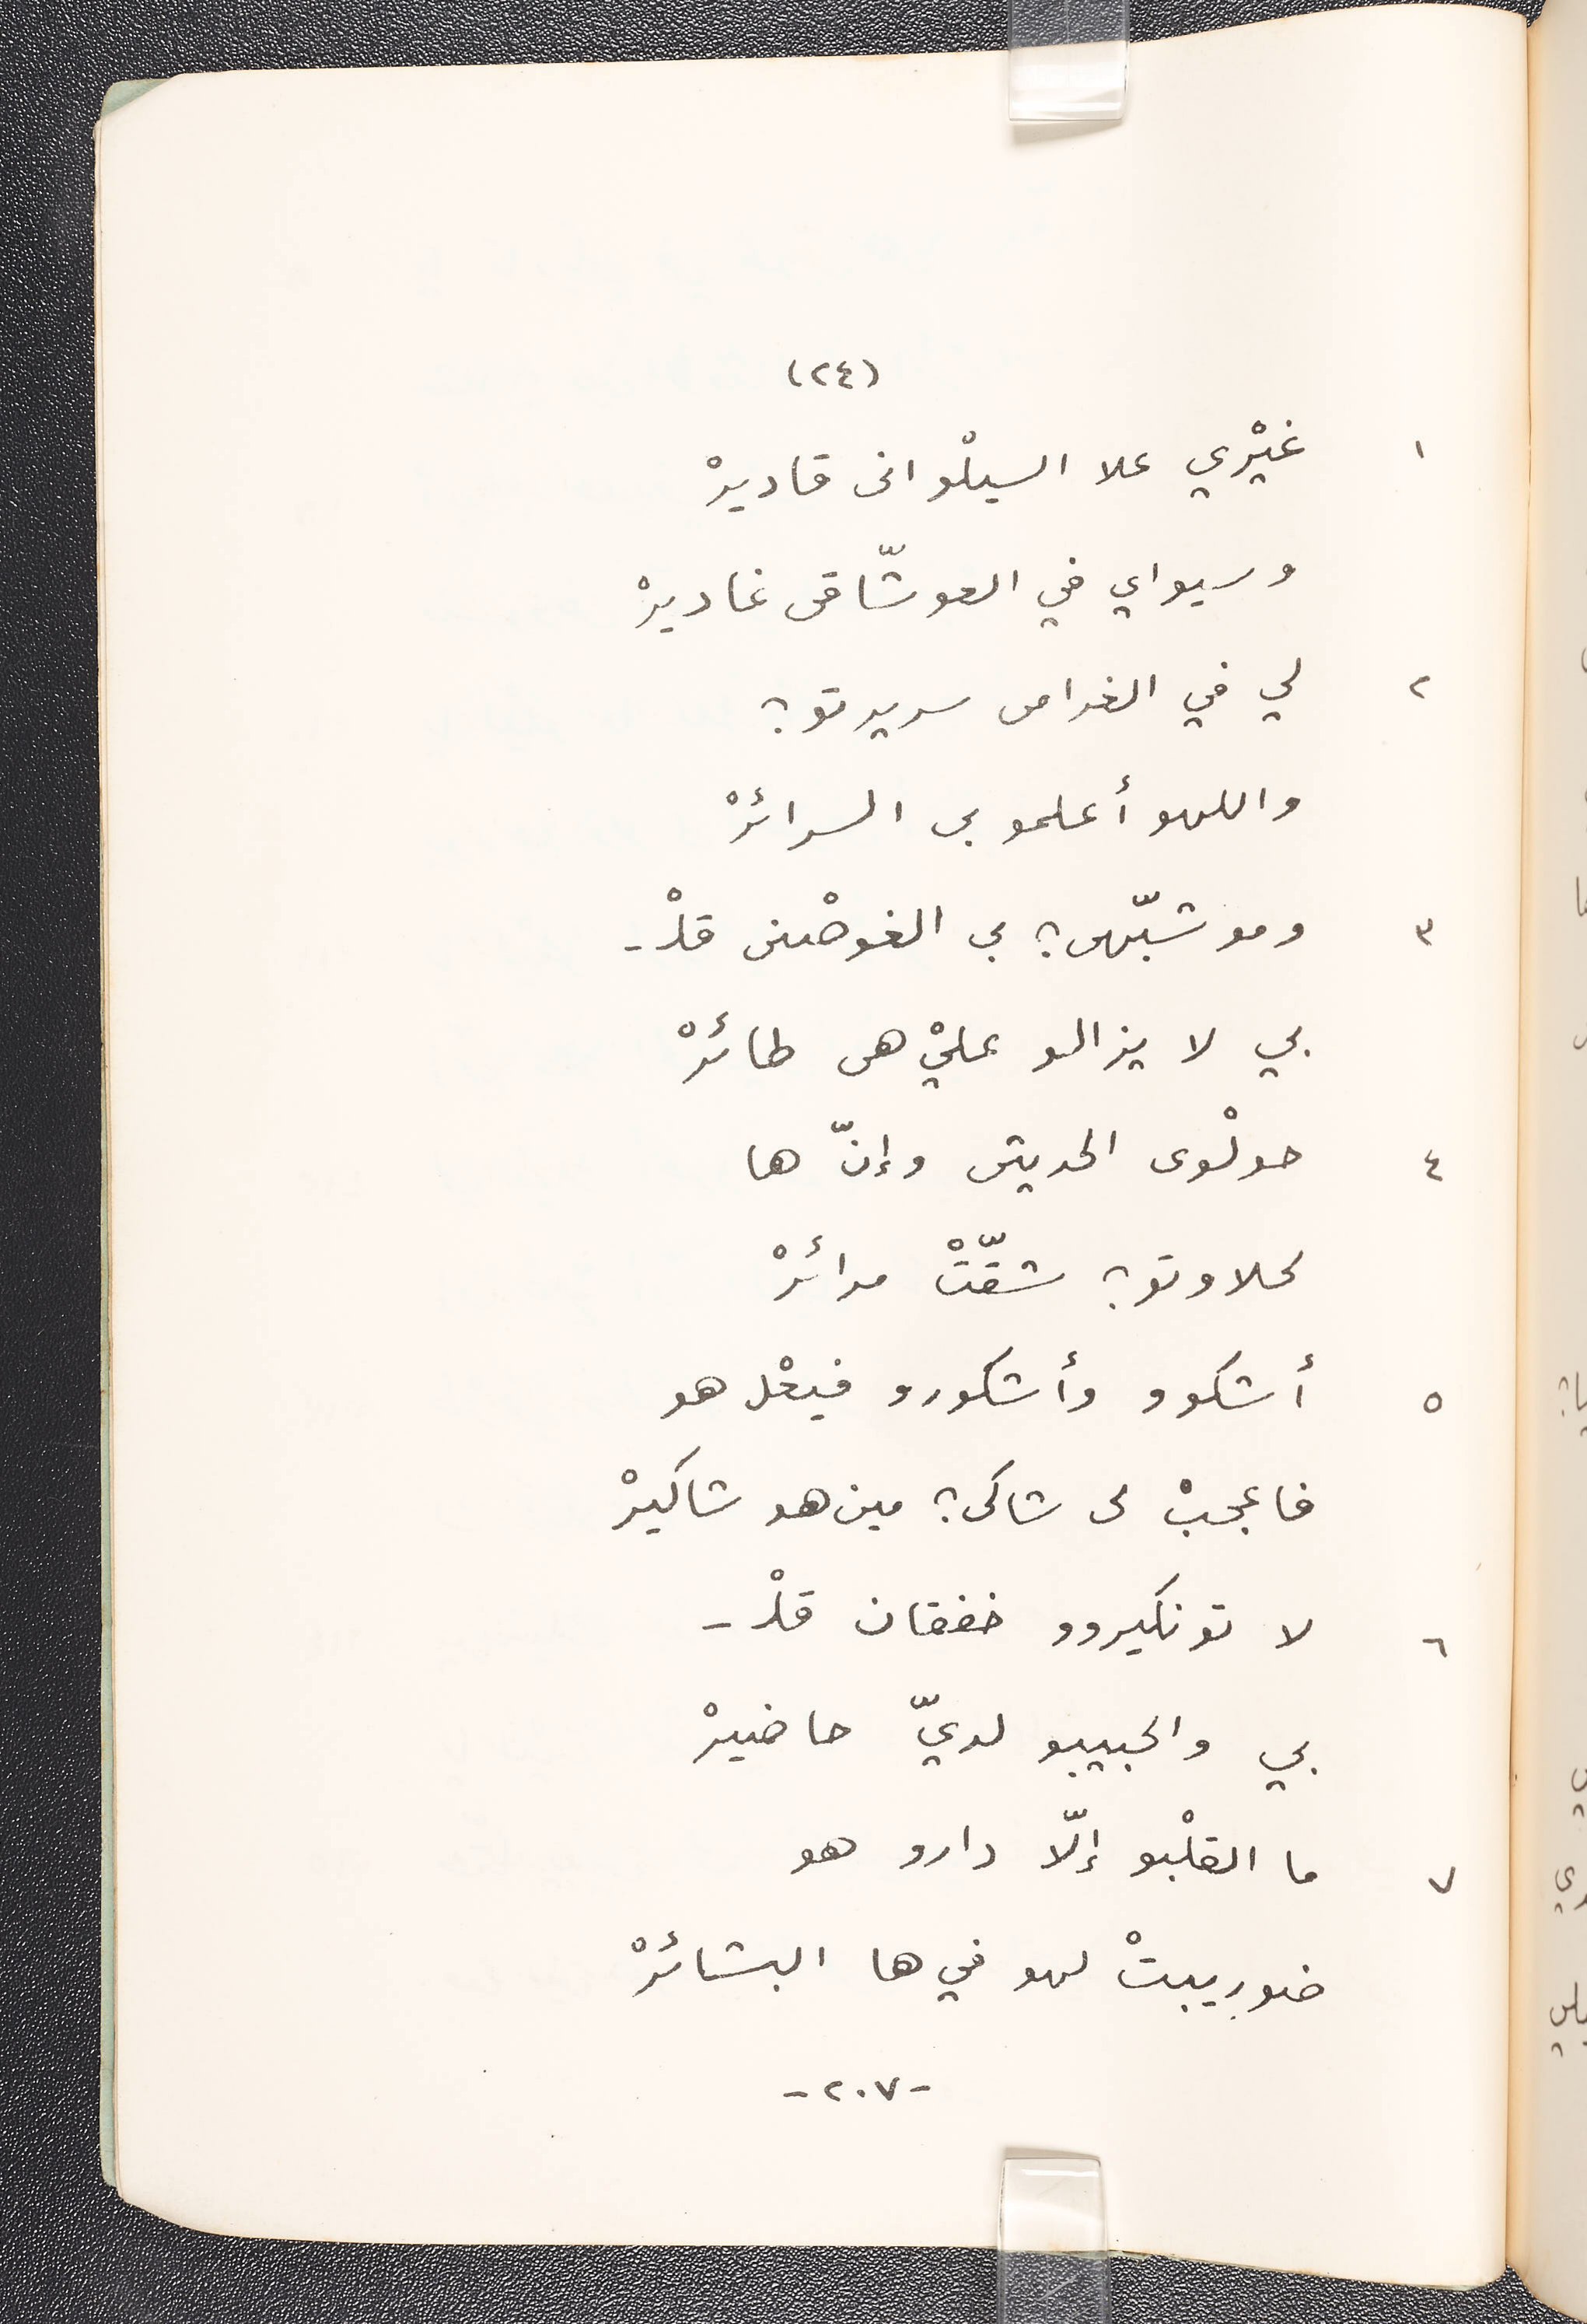 (٢٤)
١ غيْري علا السيلْوانی قاديرْ
وسيواي في العوشّاقی غاديرْ
٢ لي في الغرامی سريرتو؟
واللهو أعلمو بی السرائرْ
٣ وموشبّهی؟ بی الغوصْنی قلْ-
بي لا يزالو عليْ هی طائرْ
٤ حولْوی الحديثی وإنّ ها
لحلاوتو؟ شقّتْ مرائرْ
٥ أشكوو وأشكورو فيعْل هو
فاعجبْ لی شاکی؟ مين هو شاكيرْ
٦ لا تونكيروو خفقان قلْ-
بي والحبيبو لديّ حاضيرْ
٧ ما القلْبو إلّا دارو هو
ضوريبتْ لهو في ها البشائرْ
-٢٠٧-